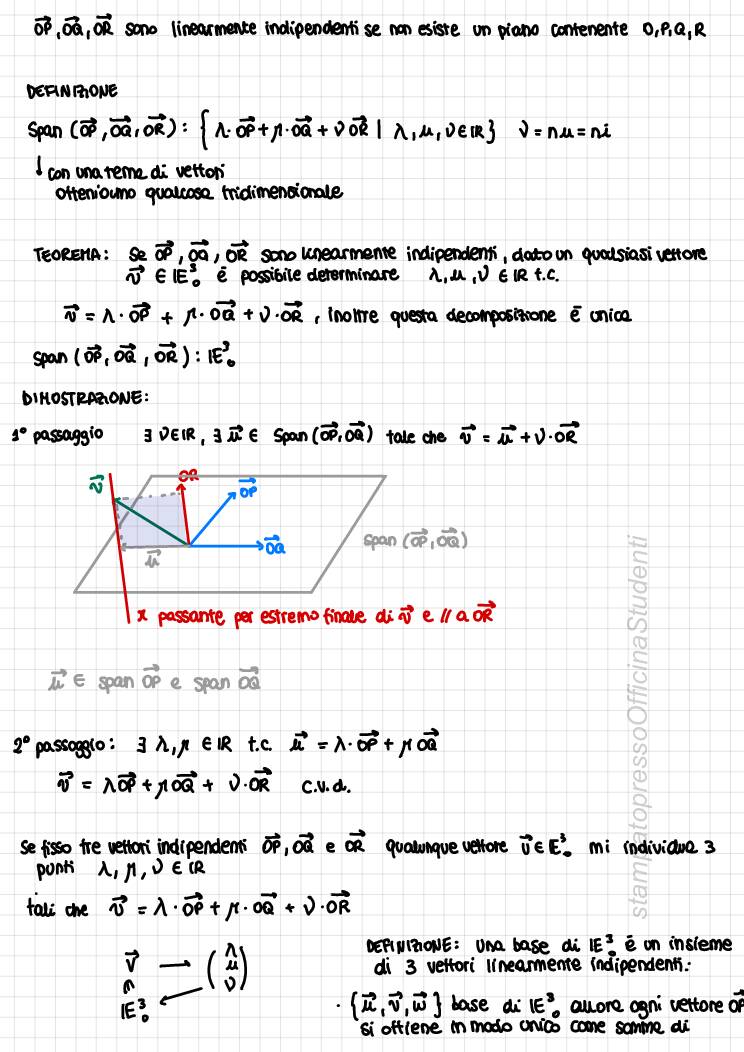 OP, OQ, OR sono linearmente indipendenti se non esiste un piano contenente O,P,Q,R
DEFINIZIONE
Span (OP, OQ, OR): { λ·OP + μ·OQ + ν OR | λ, μ, ν ∈ ℝ } ν = nu = ni
↓ con una terna di vettori
otteniamo qualcosa tridimensionale
TEOREMA: Se OP, OQ, OR sono linearmente indipendenti, dato un qualsiasi vettore
v ∈ 𝔼³₀ è possibile determinare λ, μ, ν ∈ ℝ t.c.
v = λ·OP + μ·OQ + ν·OR, inoltre questa decomposizione è unica
span (OP, OQ, OR): 𝔼³₀
DIMOSTRAZIONE:
1° passaggio ∃ ν∈ℝ, ∃ u ∈ Span(OP, OQ) tale che v = u + ν·OR
v
OR
OP
OQ
u
span (OP, OQ)
r passante per estremo finale di v e // a OR
u ∈ span OP e span OQ
2° passaggio: ∃ λ, μ ∈ ℝ t.c. u = λ·OP + μ OQ
v = λOP + μOQ + ν·OR c.v.d.
Se fisso tre vettori indipendenti OP, OQ e OR qualunque vettore v ∈ 𝔼³₀ mi individua 3
punti λ, μ, ν ∈ ℝ
tali che v = λ·OP + μ·OQ + ν·OR
v → (λ μ ν)
∩
𝔼³₀
DEFINIZIONE: una base di 𝔼³₀ è un insieme
di 3 vettori linearmente indipendenti:
· {u, v, w} base di 𝔼³₀ allora ogni vettore OP
si ottiene in modo unico come somma di
stampatopressoOfficinaStudenti